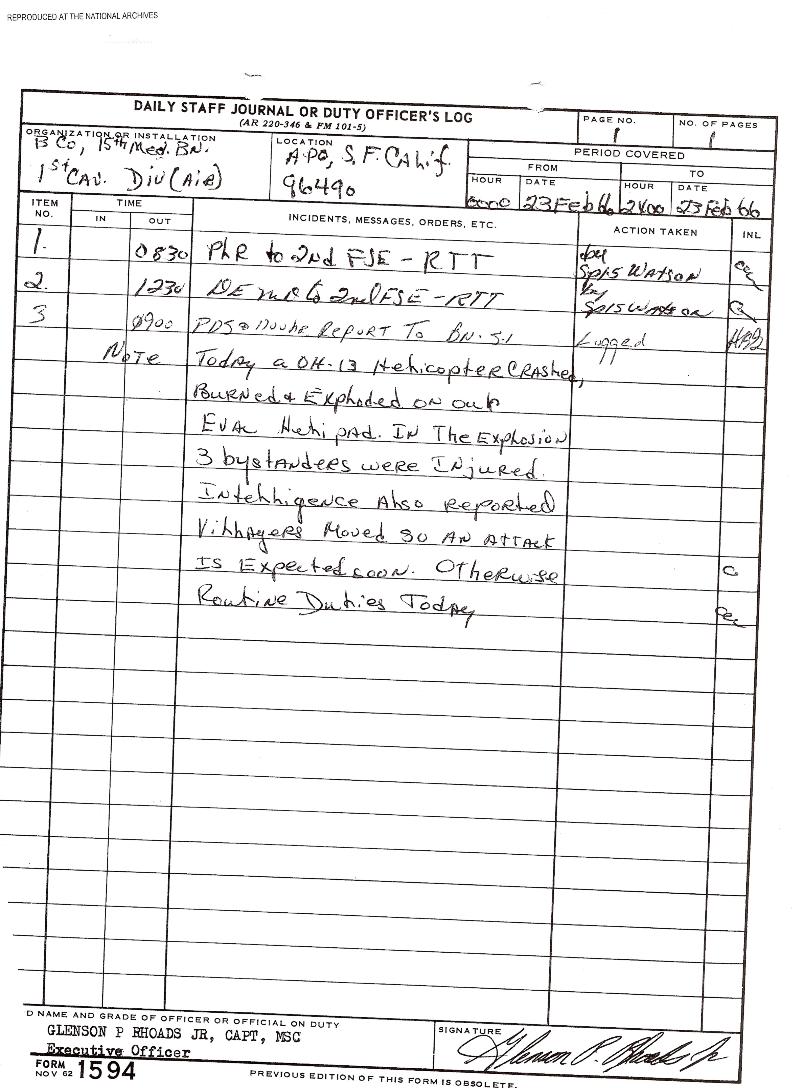 REPRODUCED AT THE NATIONAL ARCHIVES
DAILY STAFF JOURNAL OR DUTY OFFICER'S LOG
(AR 220-346 & FM 101-5)
PAGE NO.
1
NO. OF PAGES
1
ORGANIZATION OR INSTALLATION
B Co, 15th Med. BN.
1st CAV. Div (Air)
LOCATION
APO, S.F. Calif.
96490
PERIOD COVERED
FROM
TO
HOUR
DATE
HOUR
DATE
0000
23 Feb 66
2400
23 Feb 66
ITEM NO.
TIME
IN
OUT
INCIDENTS, MESSAGES, ORDERS, ETC.
ACTION TAKEN
INL
1.
0830
PLR to 2nd FSE - RTT
by
Sp/5 WATSON
2.
1230
to 2nd FSE - RTT
by
Sp/5 WATSON
3
0900
Report To BN. S-1
Logged
Note
Today a OH-13 Helicopter CRAShed,
Burned & Exploded on our
EVAC Helipad. In The Explosion
3 bystanders were Injured.
Intelligence Also Reported
Villagers Moved so An Attack
Is Expected soon. Otherwise
Routine Duties Today
D NAME AND GRADE OF OFFICER OR OFFICIAL ON DUTY
GLENSON P RHOADS JR, CAPT, MSC
Executive Officer
SIGNATURE
Glenson P. Rhoads Jr
FORM
NOV 62
1594
PREVIOUS EDITION OF THIS FORM IS OBSOLETE.